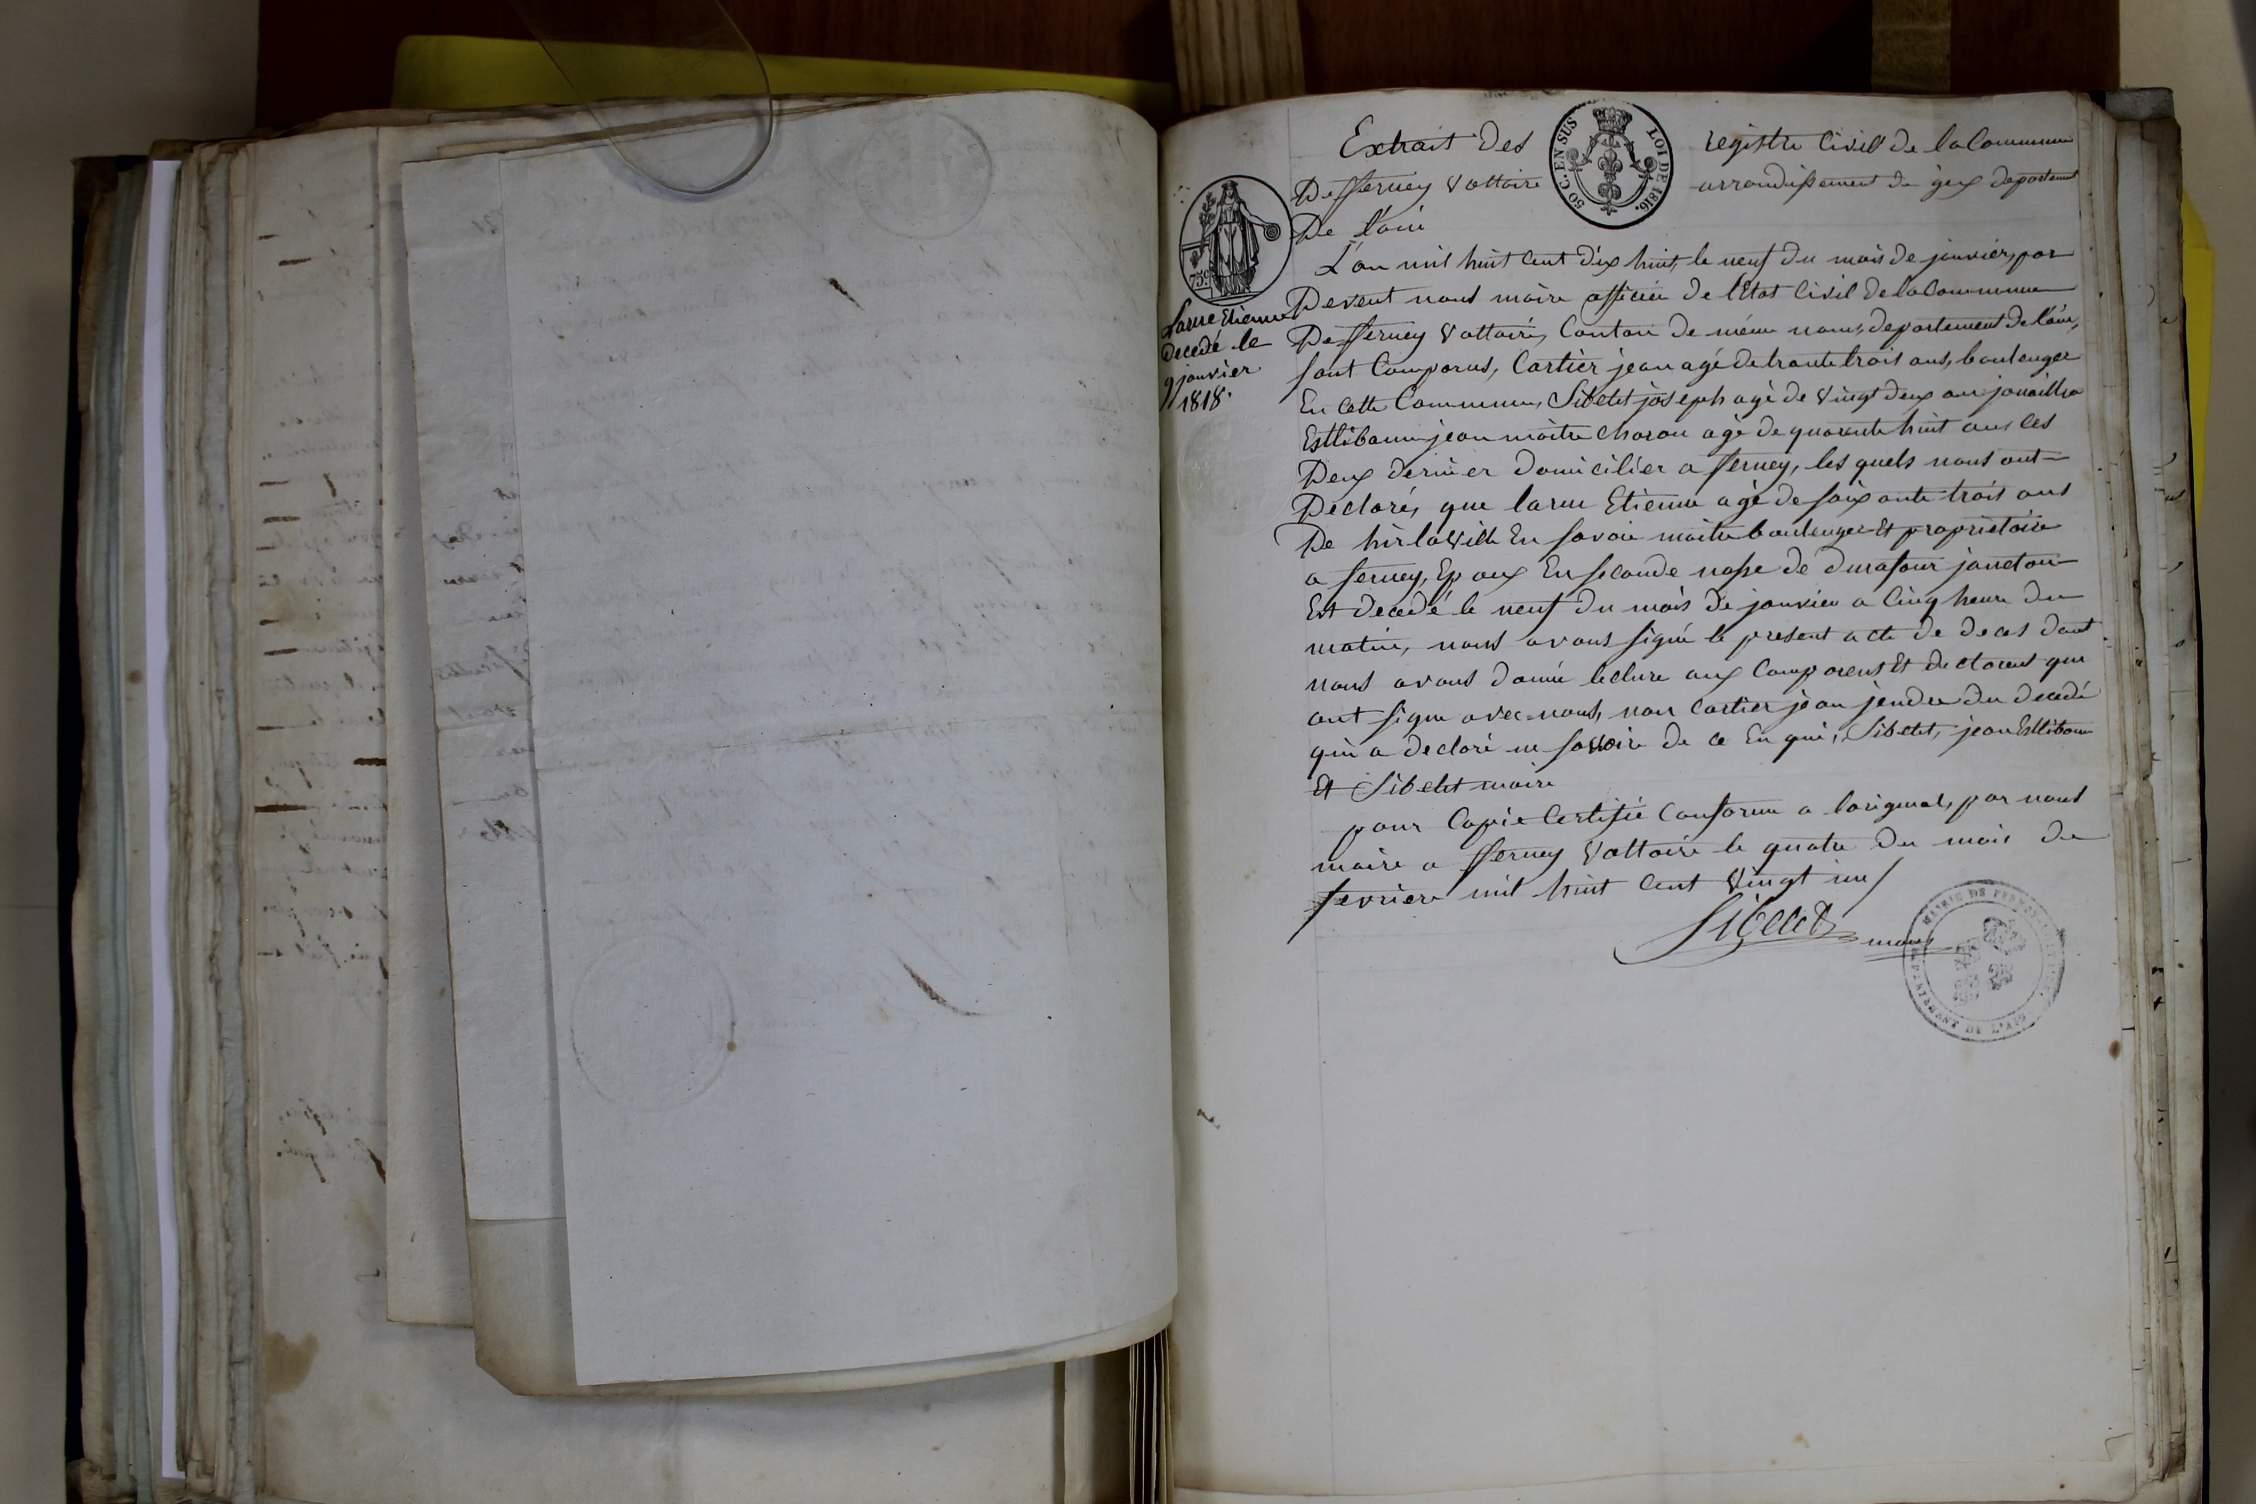 Extrait des registre Civil de la Commune
De fferney Voltaire arrondissement de gex departement
De l'ain
50 C. EN SUS
LOI DE 1816.
75 c.
Larue Etienne
Decedé le
9 janvier
1818.
L'an mil huit cent dix huit, le neuf du mois de janvier, par
Devent nous maire officier de l'Etat Civil de la Commune
De fferney Voltaire, Canton de même nom, departement de l'ain,
sont Comparus, Cartier jean agé de trante trois ans, boulenger
En cette Commune, Sibelet joseph agé de vingt deux ans jouaillier
Estlibaum jean maitre charon agé de quarente huit ans les
Deux dernier domicilier a fferney, les quels nous ont
Declaré, que larue Etienne agé de soixante trois ans
De En savoie maitre boulenger Et proprietaire
a fferney, Epoux En seconde nosse de durafour janeton
Est decedé le neuf du mois de janvier a Cinq heure du
matin, nous avons signé le present acte de deces dont
nous avons donné lecture aux Comparens Et declarens qui
ont signe avec nous, non Cartier jean jendre du decedé
qui a declaré ne savoir de ce En qui, Sibelet, jean Estlibaum
Et Sibelet maire
pour Copie Certifié Conforme a l'original, par nous
maire a fferney Voltaire le quatre du mois de
fevrier mil huit cent vingt un
Sibelet maire
MAIRIE DE FERNEY
DEPARTEMENT DE L'AIN